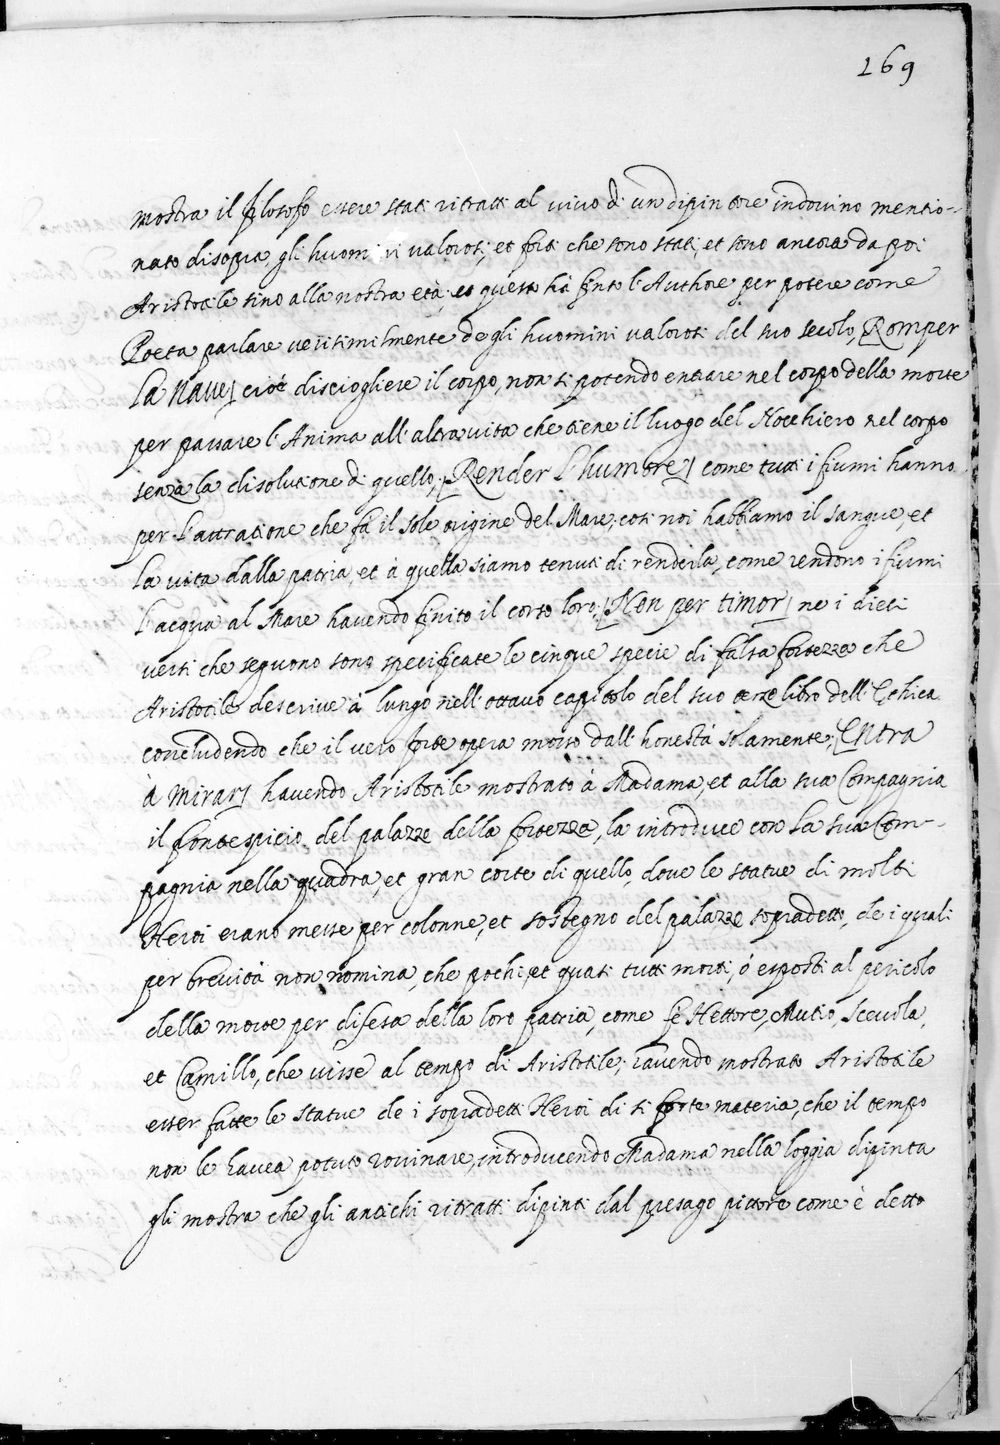 169
mostra il filosofo essere stati ritratti al vivo di un dipintore indovino mentio-
nato disopra, gli huomini valorosi, et forti che sono stati, et sono ancora da poi
Aristotile sino alla nostra età; et questo hà finto l'Authore per potere come
Poeta parlare verisimilmente degli huomini valorosi del suo secolo, Romper
la Nave] cioè disciogliere il corpo, non si potendo entrare nel corpo della morte
per passare l'Anima all'altra vita che tiene il luogo del Nocchiero nel corpo
senza la disolutione di quello; [Render l'humore] come tutti i fiumi hanno
per l'attratione che fà il sole origine del Mare, così noi habbiamo il sangue, et
la vita dalla patria et à quella siamo tenuti di renderla, come rendono i fiumi
l'acqua al Mare havendo finito il corso loro; [Non per timor] ne i dieci
versi che seguono sono specificate le cinque specie di falsa fortezza che
Aristotile descrive à lungo nell'ottavo capitolo del suo terzo libro dell'Ethica
concludendo che il vero forte opera mosso dall'honestà solamente; [Entra
à mirar] havendo Aristotile mostrato à Madama, et alla sua Compagnia
il frontespicio del palazzo della fortezza, la introduce con la sua Com-
pagnia nella quadra, et gran corte di quello, dove le statue di molti
Heroi erano messe per colonne, et sostegno del palazzo sopradetto, de i quali
per brevità non nomina, che pochi, et quasi tutti morti, ò esposti al pericolo
della morte per difesa della loro patria, come fè Hettore, Mutio, Scevola,
et Camillo, che visse al tempo di Aristotile; havendo mostrato Aristotile
esser fatte le statue de i sopradetti Heroi di sì forte materia, che il tempo
non le havea potuto rovinare, introducendo Madama nella loggia dipinta
gli mostra che gli antichi ritratti dipinti dal presago pittore come è detto